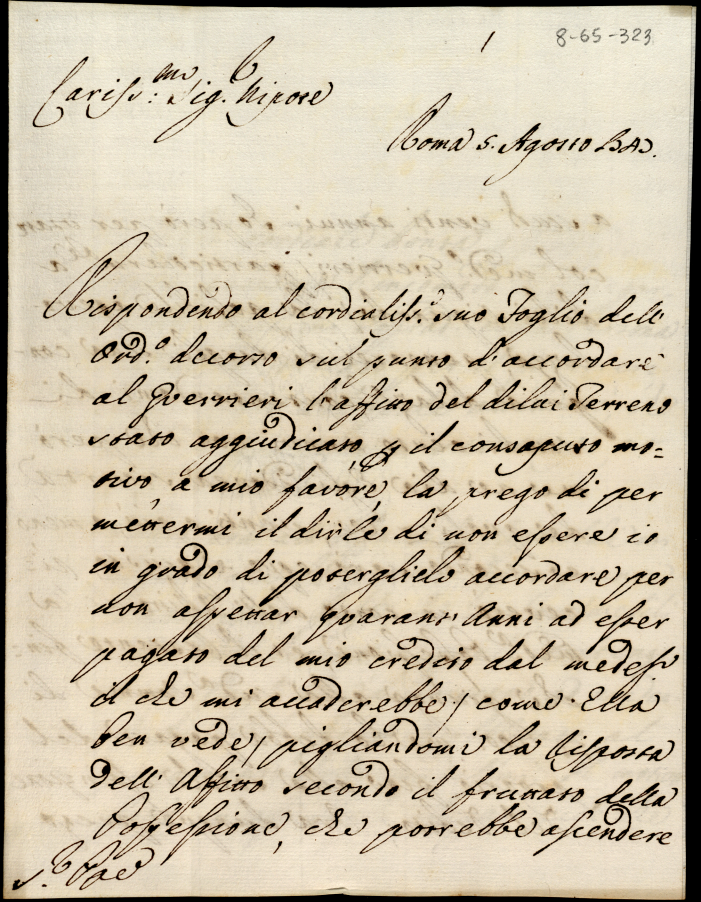 8-65-323
1
Cariss:mo Sig.e Nipote
Roma 5. Agosto
Rispondendo al cordialiss.o suo Foglio dell'
Ord.o decorso sul punto d'accordare
al Guerrieri l'affitto del di lui Terreno
stato aggiudicato, p il consaputo mo=
tivo, a mio favore, la prego di per
mettermi il dirle di non essere io
in grado di poterglielo accordare per
non aspettar quarant'Anni ad esser
pagato del mio credito dal medes.o
il che mi accaderebbe / come Ella
ben vede / pigliandomi la Risposta
dell'Affitto secondo il fruttato della
Possessione, che potrebbe ascendere